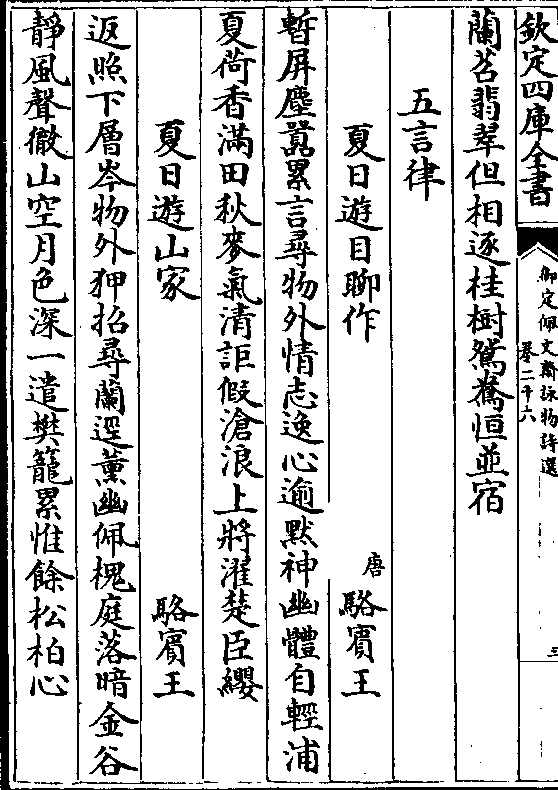 欽定四庫全書
御定佩文齋詠物詩選
卷二十六
三
蘭苕翡翠但相逐桂樹鴛鴦恒並宿
五言律
夏日遊目聊作 唐駱賓王
暫屏塵囂累言尋物外情志逸心逾默神幽體自輕浦
夏荷香滿田秋麥氣清詎假滄浪上將濯楚臣纓
夏日遊山家 駱賓王
返照下層岑物外狎招尋蘭逕薰幽佩槐庭落暗金谷
靜風聲徹山空月色深一遣樊籠累惟餘松柏心